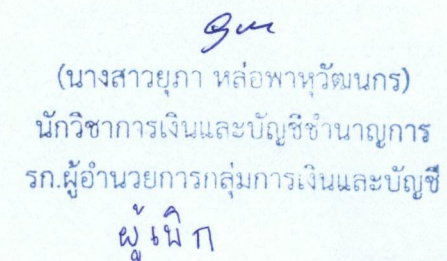 (นางสาวยุภา หล่อพาหุวัฒนกร)
นักวิชาการเงินและบัญชีชำนาญการ
รก.ผู้อำนวยการกลุ่มการเงินและบัญชี
ผู้เบิก